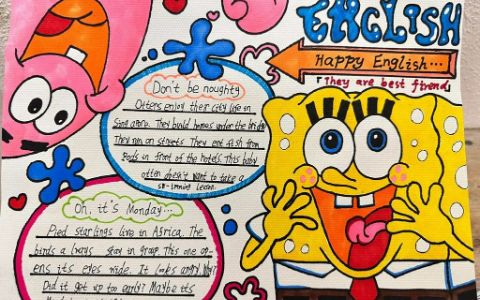 ENGLISH
HAPPY ENGLISH...
They are best firend
Don't be noughty
Otters enjoy their city life in
They build homes under the bridge
They run on streets They eat fish from
in front of the hotels This baby
otter doesn't want to take a
swimming lesson.
Oh, it's Monday...
Pied starlings live in Africa. The
birds always stay in group. This one op-
ens its eyes wide. It looks angry Why?
Did it get up too early? Maybe its